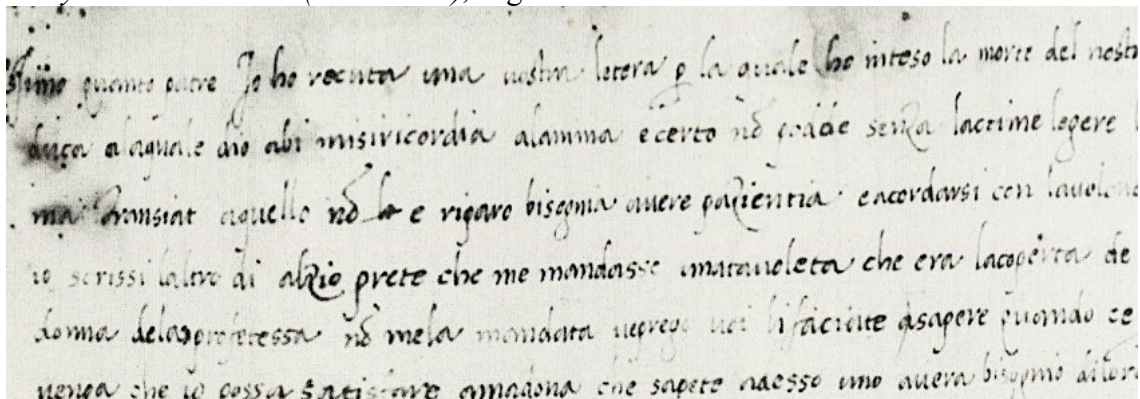 simo quanto patre Jo ho receuta una vostra letera p la quale ho inteso la morte del nostr
duca alaquale dio abi misiricordia alanima ecerto nō podde senza lacrime legere
ma transiat aquello nō e riparo bisognia avere pazientia eacordarsi con lavolon
io scrissi laltro di alzio prete che me mandasse unatavoleta che era lacoperta de
donna delaprofetessa nō mela mandata veprego voi lifaciate asapere quando ce
venga che io possa satisfare amadona che sapete adesso uno avera bisognio dilor